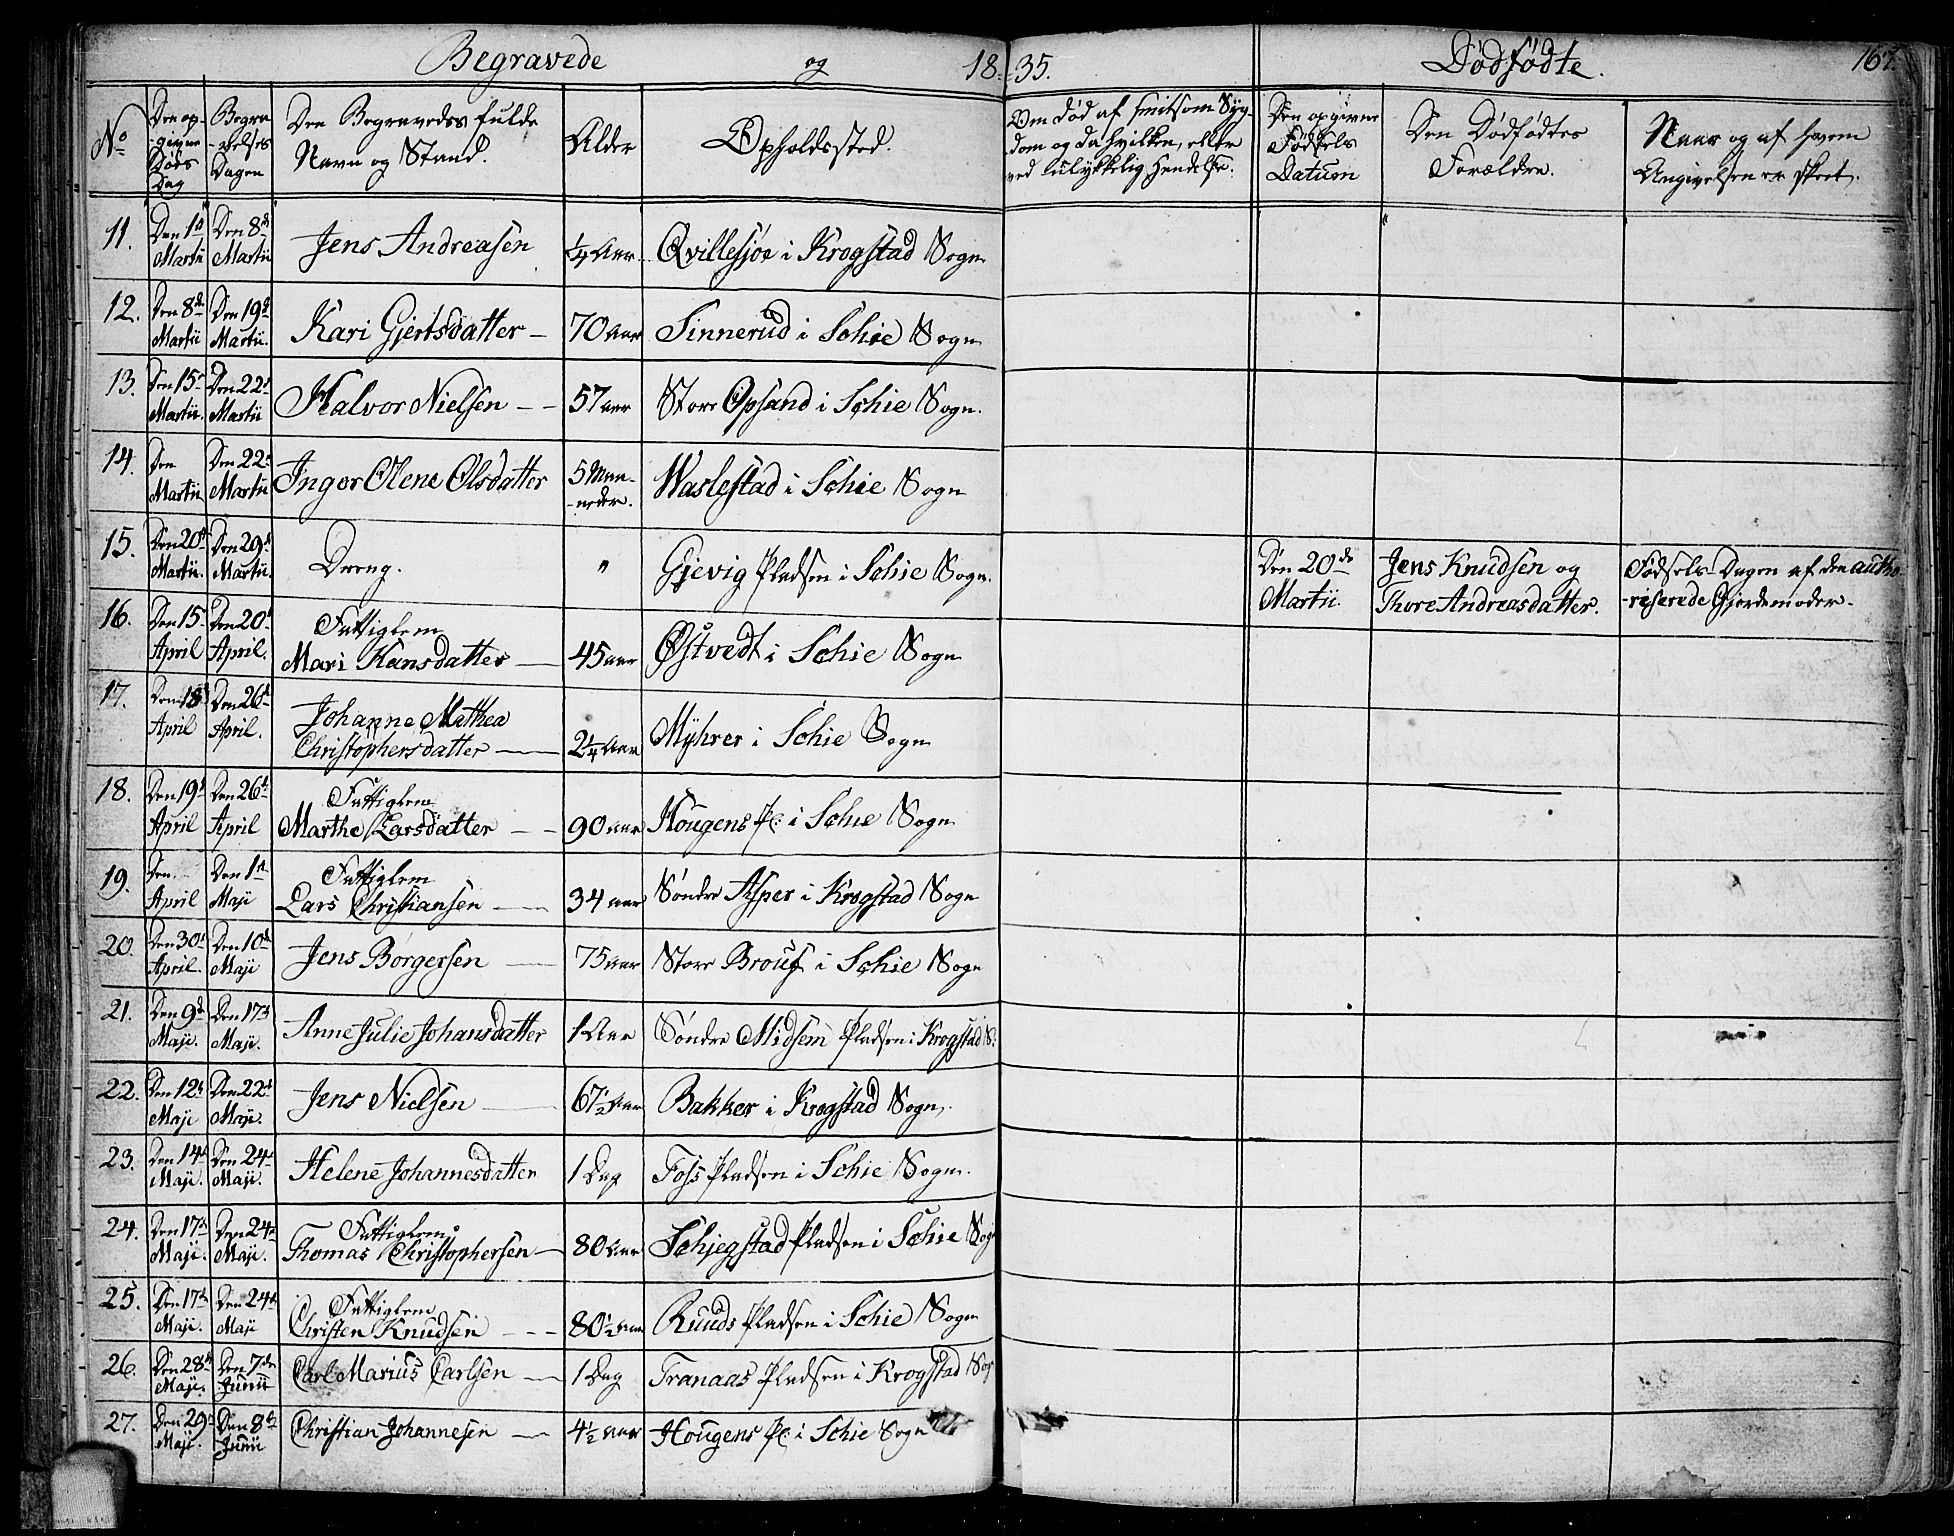 Begravede og 18 35. Dødfødte. 167.
No
Den op-
givne
Døds
Dag
Begra
velses
Dagen
Den Begravedes fulde
Navn og Stand.
Alder
Opholdssted.
Om død af smitsom Syg-
dom og da hvilken, eller
ved ulykkelig Hendelse.
Den opgivne
Fødsels
Datum
Den Dødfødtes
Forældre.
Naar og af hvem
Angivelsen er skeet.
11. Den 1ste Martii Den 8de Martii Jens Andreasen 1/4 Aar Qvillesjøe i Krogstad Sogn
12. Den 8de Martii Den 19de Martii. Kari Gjertsdatter 70 aar Sinnerud i Schie Sogn
13. Den 15de Martii. Den 22de Martii Halvor Nielsen 57 aar Store Opsand i Schie Sogn.
14. Den Martii Den 22de Martii Inger Olene Olsdatter 5 Maa-
neder. Waslestad i Schie Sogn
15. Den 20de Martii. Den 29de Martii. Dreng. " Gjevig Pladsen i Schie Sogn. Den 20de Jens Knudsen og Fødsels Dagen af den autho-
Martii. Thore Andreasdatter. -riserede Gjordemoder.
16. Den 15de April Den 20de April. Fattiglem
Mari Hansdatter 45 aar Østvedt i Schie Sogn
17. Den 18de April Den 26de April. Johanne Mathea
Christophersdatter 2 1/4 Aar Myhrer i Schie Sogn
18. Den 19de April Den 26de April Fattiglem
Marthe Larsdatter 90 aar Hougens Pl: i Schie Sogn
19. Den April Den 1ste Maji Fattiglem
Lars Christiansen 34 aar Søndre Asper i Krogstad Sogn
20. Den 30te April. Den 10de Maji Jens Børgersen 75 aar Store Brouf i Schie Sogn
21. Den 9de Maji. Den 17de Maji. Anne Julie Johansdatter 1 Aar Søndre Midsem Pladsen i Krogstad S:
22. Den 12te Maji Den 22de Maji. Jens Nielsen 67 1/2 Aar Bakker i Krogstad Sogn.
23. Den 14de Maji. Den 24de Maji. Helene Johannesdatter 1 Dag Foss Pladsen i Schie Sogn.
24. Den 17de Maji. Den 24de Maji. Fattiglem
Thomas Christophersen 80 Aar Schjegstad Pladsen i Schie Sogn
25. Den 17de Maji. Den 24de Maji Fattiglem
Christen Knudsen 80 1/2 aar Ruuds Pladsen i Schie Sogn
26. Den 28de Maji. Den 7de Junii Carl Marius Carlsen 1 Dag Tranaas Pladsen i Krogstad Sogn
27. Den 29de Maji. Den 8de Junii Christian Johannesen 4 1/2 aar Hougens Pl: i Schie Sogn